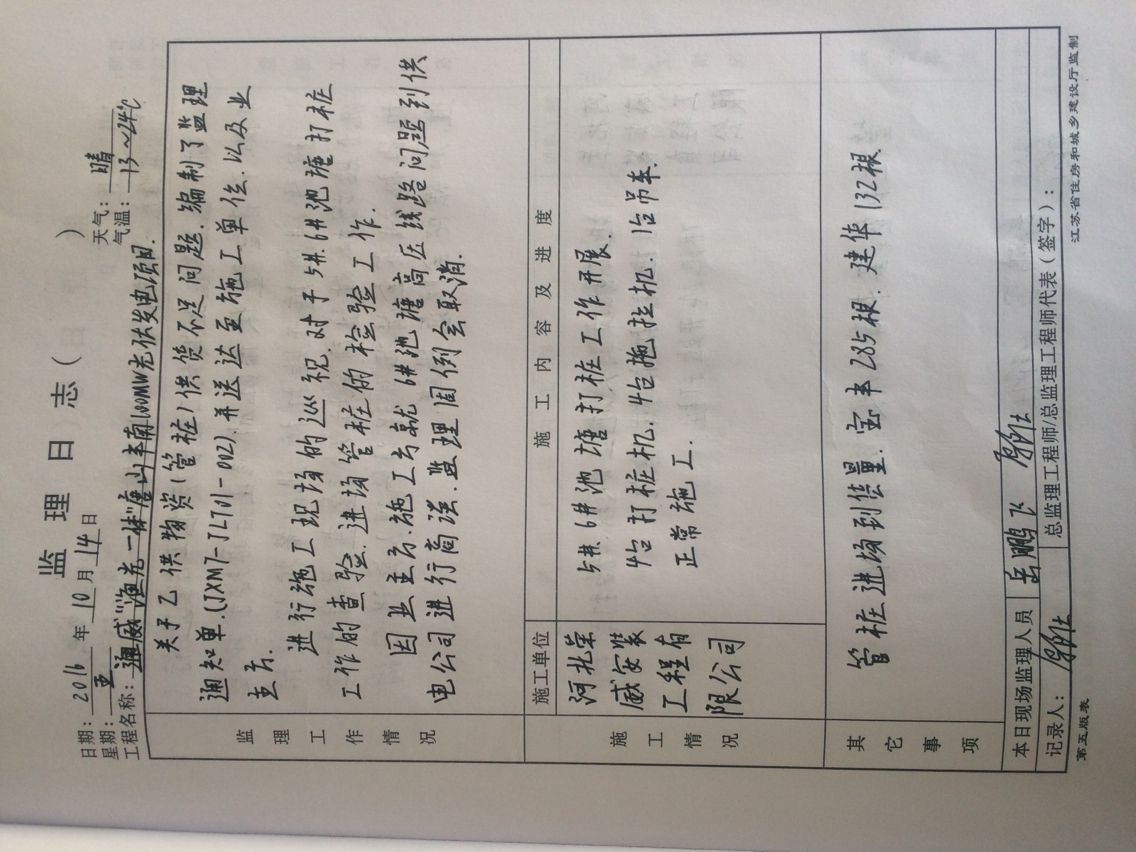 监理日志（ ）
日期：2016年10月14日 天气：晴
星期：五 气温：13～24℃
工程名称：通威"渔光一体"唐山丰南100MW光伏发电项目.
监理工作情况
关于乙供物资(管桩)供货不足问题.编制了监理
通知单.(JXM7-JLT01-002).并送达至施工单位.以及业
主方.
进行施工现场的巡视.对于5#.6#池塘打桩
工作的查验.进场管桩的检验工作.
因业主方.施工方就6#池塘高压线路问题到供
电公司进行商谈.监理周例会取消.
施工单位 施工内容及进度
施工情况
河北荣
威安装
工程有
限公司
5#.6#池塘打桩工作开展.
4台打桩机.4台拖拉机.1台吊车.
正常施工.
其它事项
管桩进场到货量.宝丰285根.建华132根.
本日现场监理人员 岳鹏飞
记录人： 总监理工程师/总监理工程师代表（签字）：
第五版表 江苏省住房和城乡建设厅监制